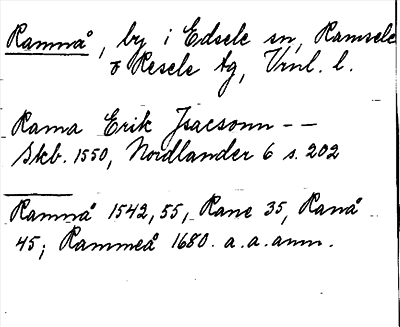 Ramnå, by i Edsele sn, Ramsele
o Resele tg, Vrnl. l.
Rama Erik Jsacsonn - -
Skb. 1550, Nordlander 6 s. 202
Ramnå 1542, 55, Rane 35, Ranå
45; Rammeå 1680. a.a. anm.